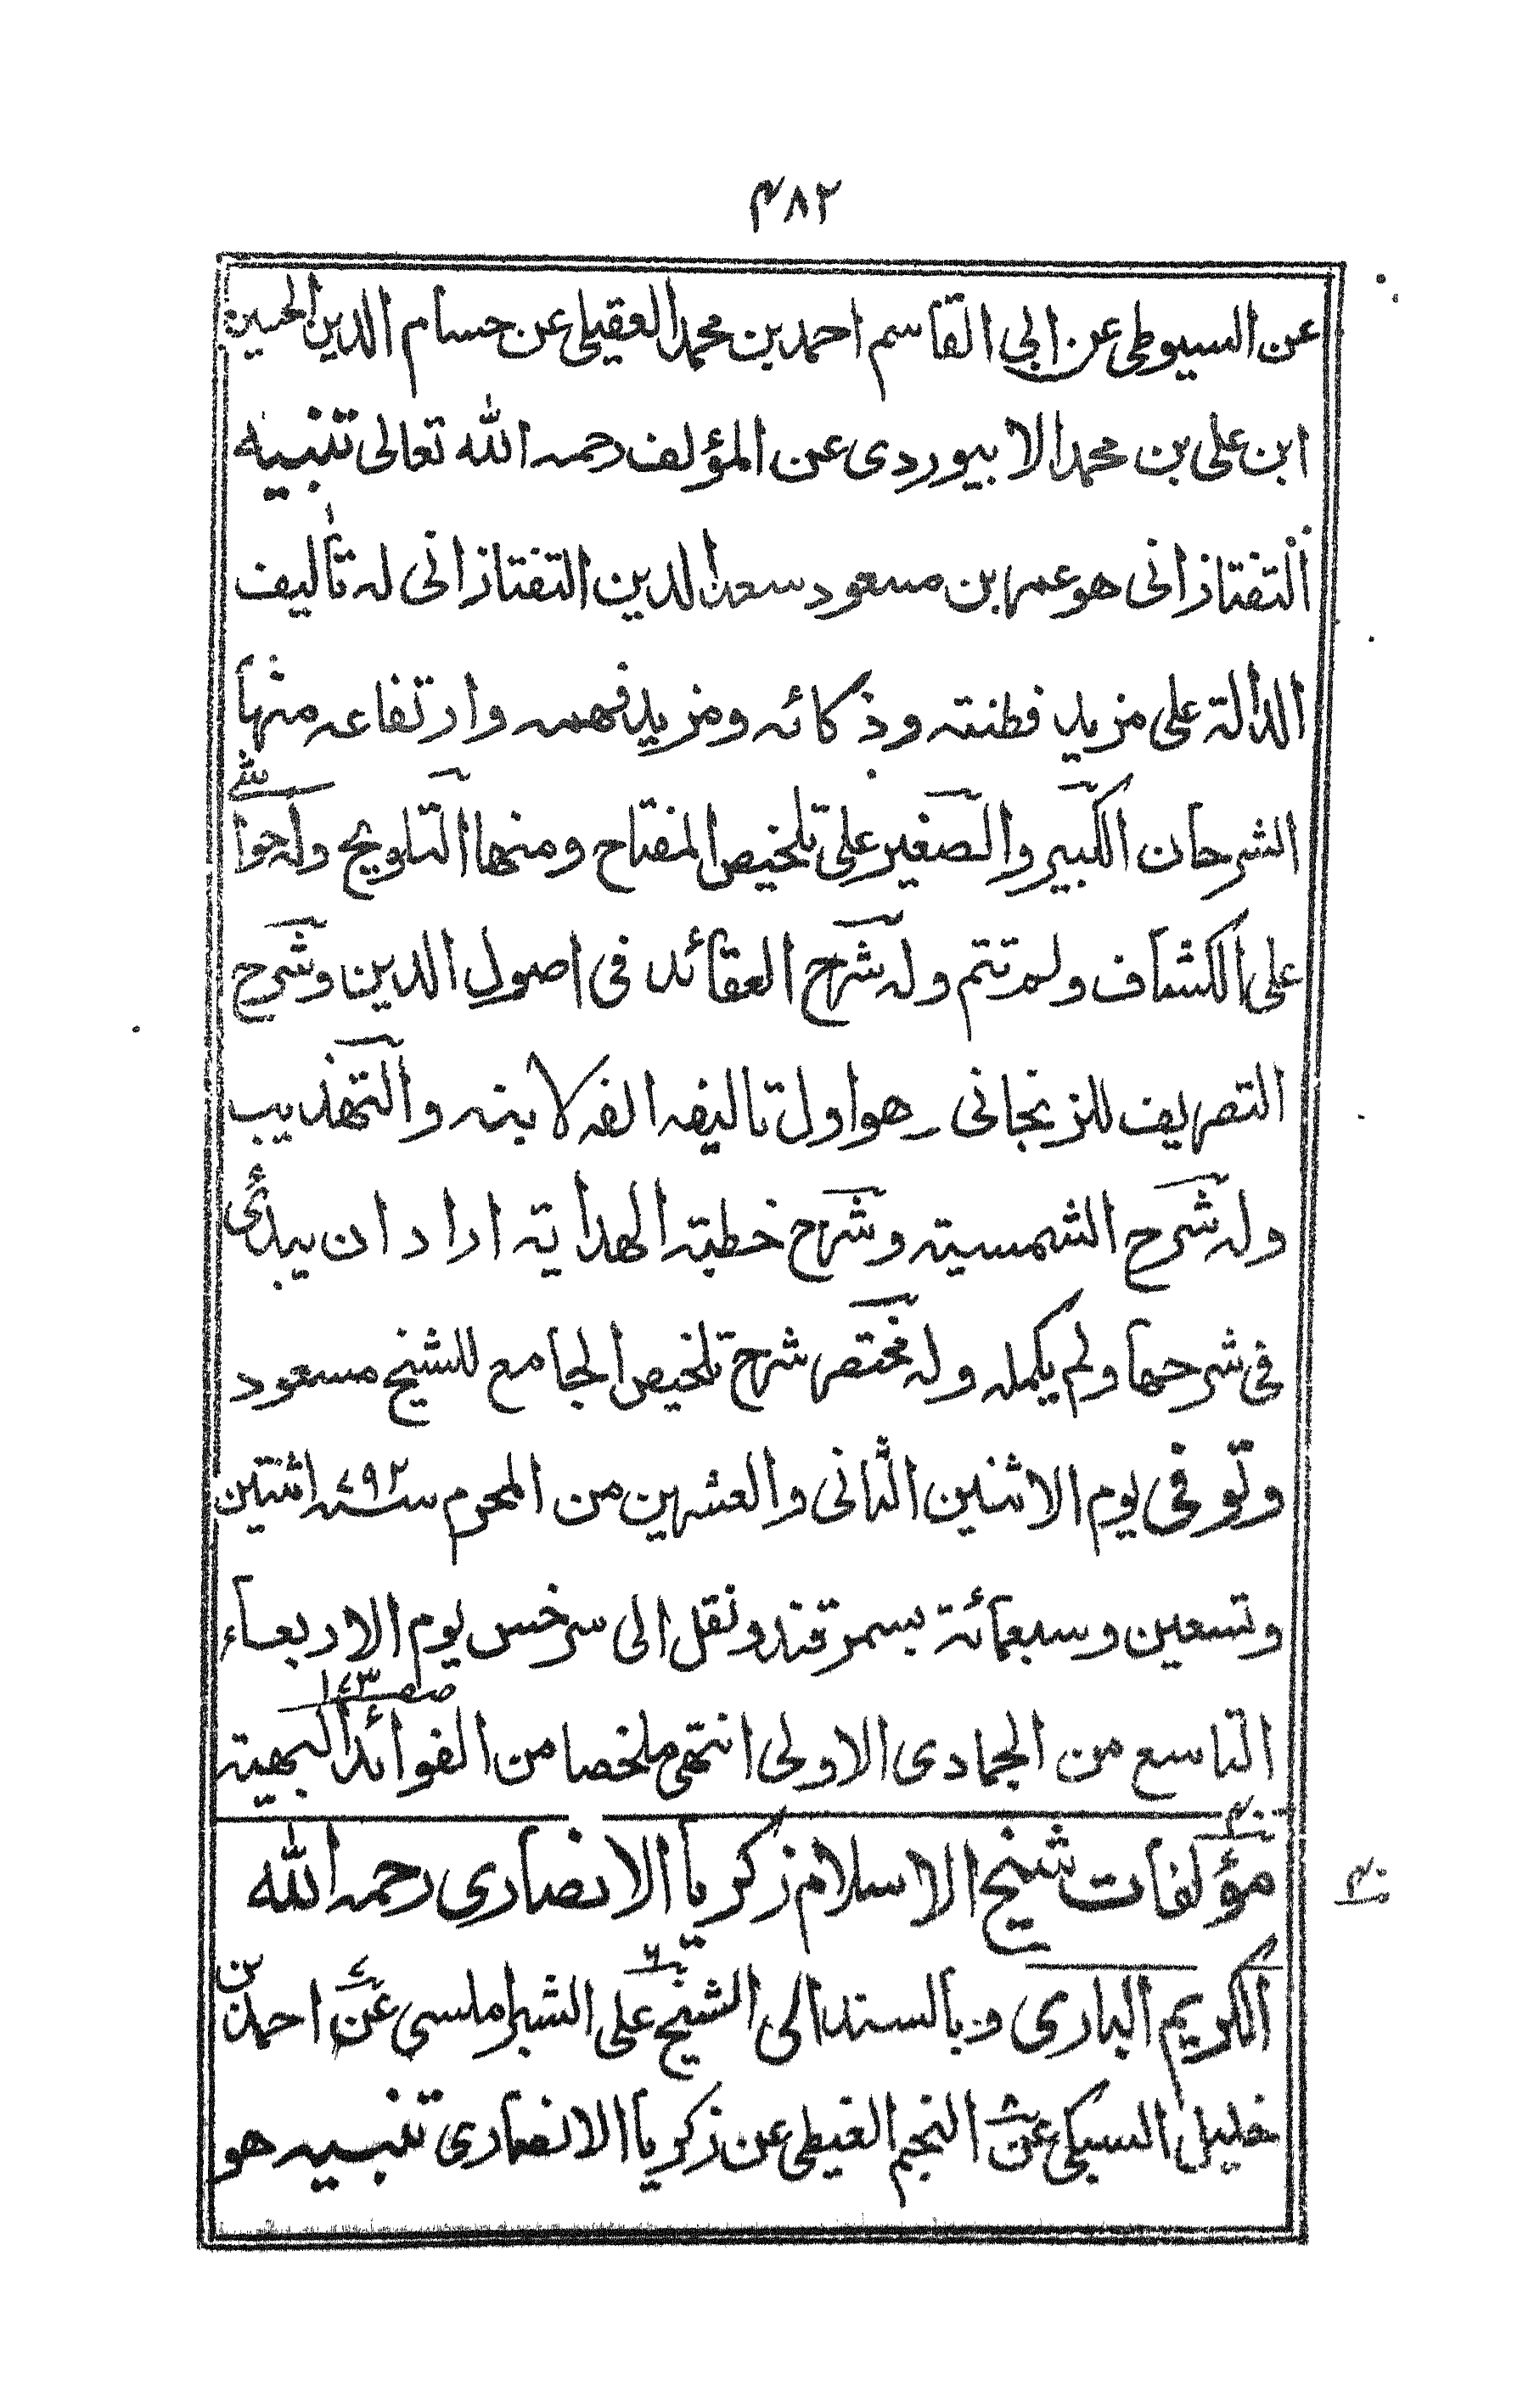 ٤٨٢
عن السيوطي عن ابي القاسم احمد بن محمد العقيلي عن حسام الدين الحسين
ابن علی بن محمد الابيوردی عن المؤلف رحمه الله تعالی تنبيه
التفتازانی هو عمر ابن مسعود سعد الدين التفتازانی له تأليف
الدالة علی مزيد فطنته وذكائه ومزيد فهمه وارتفاعه منها
الشرحان الكبير والصغير علی تلخيص المفتاح ومنها التلويح وله حواشی
علی الكشاف ولم تتم وله شرح العقائد فی اصول الدين وشرح
التصريف للزنجانی وهو اول تاليفه الفه لابنه والتهذيب
وله شرح الشمسية وشرح خطبة الهداية اراد ان يبدئ
فی شرحها ولم يكمله وله مختصر شرح تلخيص الجامع للشيخ مسعود
وتوفی يوم الاثنين الثانی والعشرين من المحرم سنة ٧٩٢ اثنتين
وتسعين وسبعمائة بسمرقند ونقل الی سرخس يوم الاربعاء
التاسع من الجمادی الاولی انتهی ملخصا من الفوائد البهية صـ ١٤٣
مؤلفات شيخ الاسلام زكريا الانصاری رحمه الله
الكريم الباری وبالسند الی الشيخ علی الشبراملسی عن احمد بن
خليل السبكی عن النجم الغيطی عن زكريا الانصاری تنبيه هو